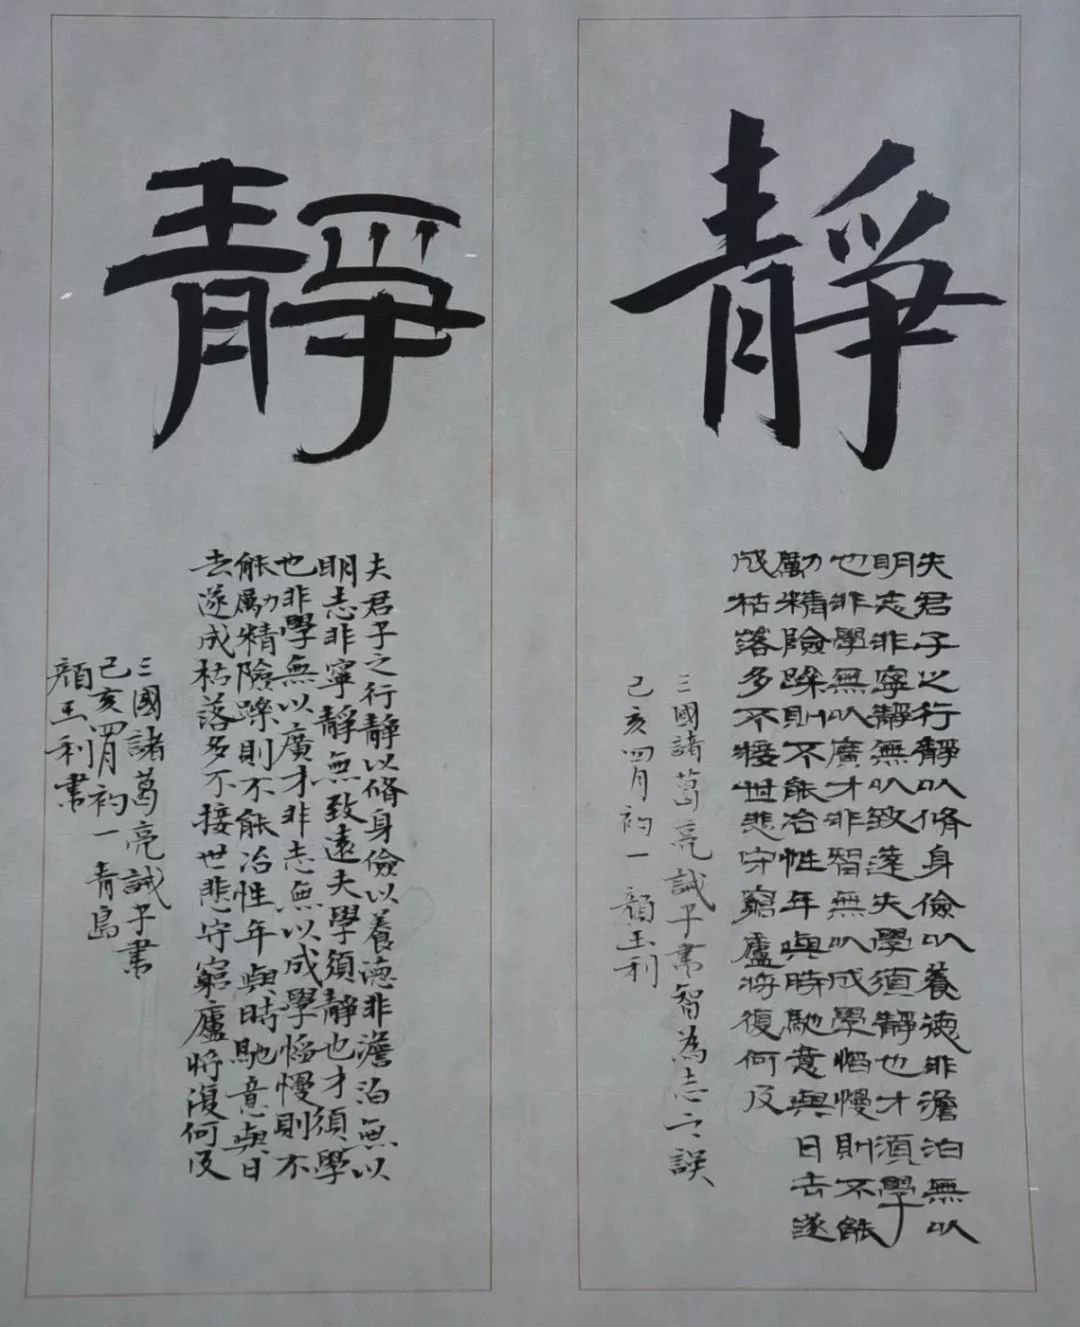 靜
夫君子之行靜以脩身儉以養德非澹泊無以
明志非寧靜無以致遠夫學須靜也才須學
也非學無以廣才非智無以成學慆慢則不能
勵精險躁則不能冶性年與時馳意與日去遂
成枯落多不接世悲守窮廬將復何及
三國諸葛亮誡子書智為志之誤
己亥四月初一顏玉利
靜
夫君子之行靜以脩身儉以養德非澹泊無以
明志非寧靜無以致遠夫學須靜也才須學
也非學無以廣才非志無以成學慆慢則不
能勵精險躁則不能冶性年與時馳意與日
去遂成枯落多不接世悲守窮廬將復何及
三國諸葛亮誡子書
己亥四月初一青島
顏玉利書